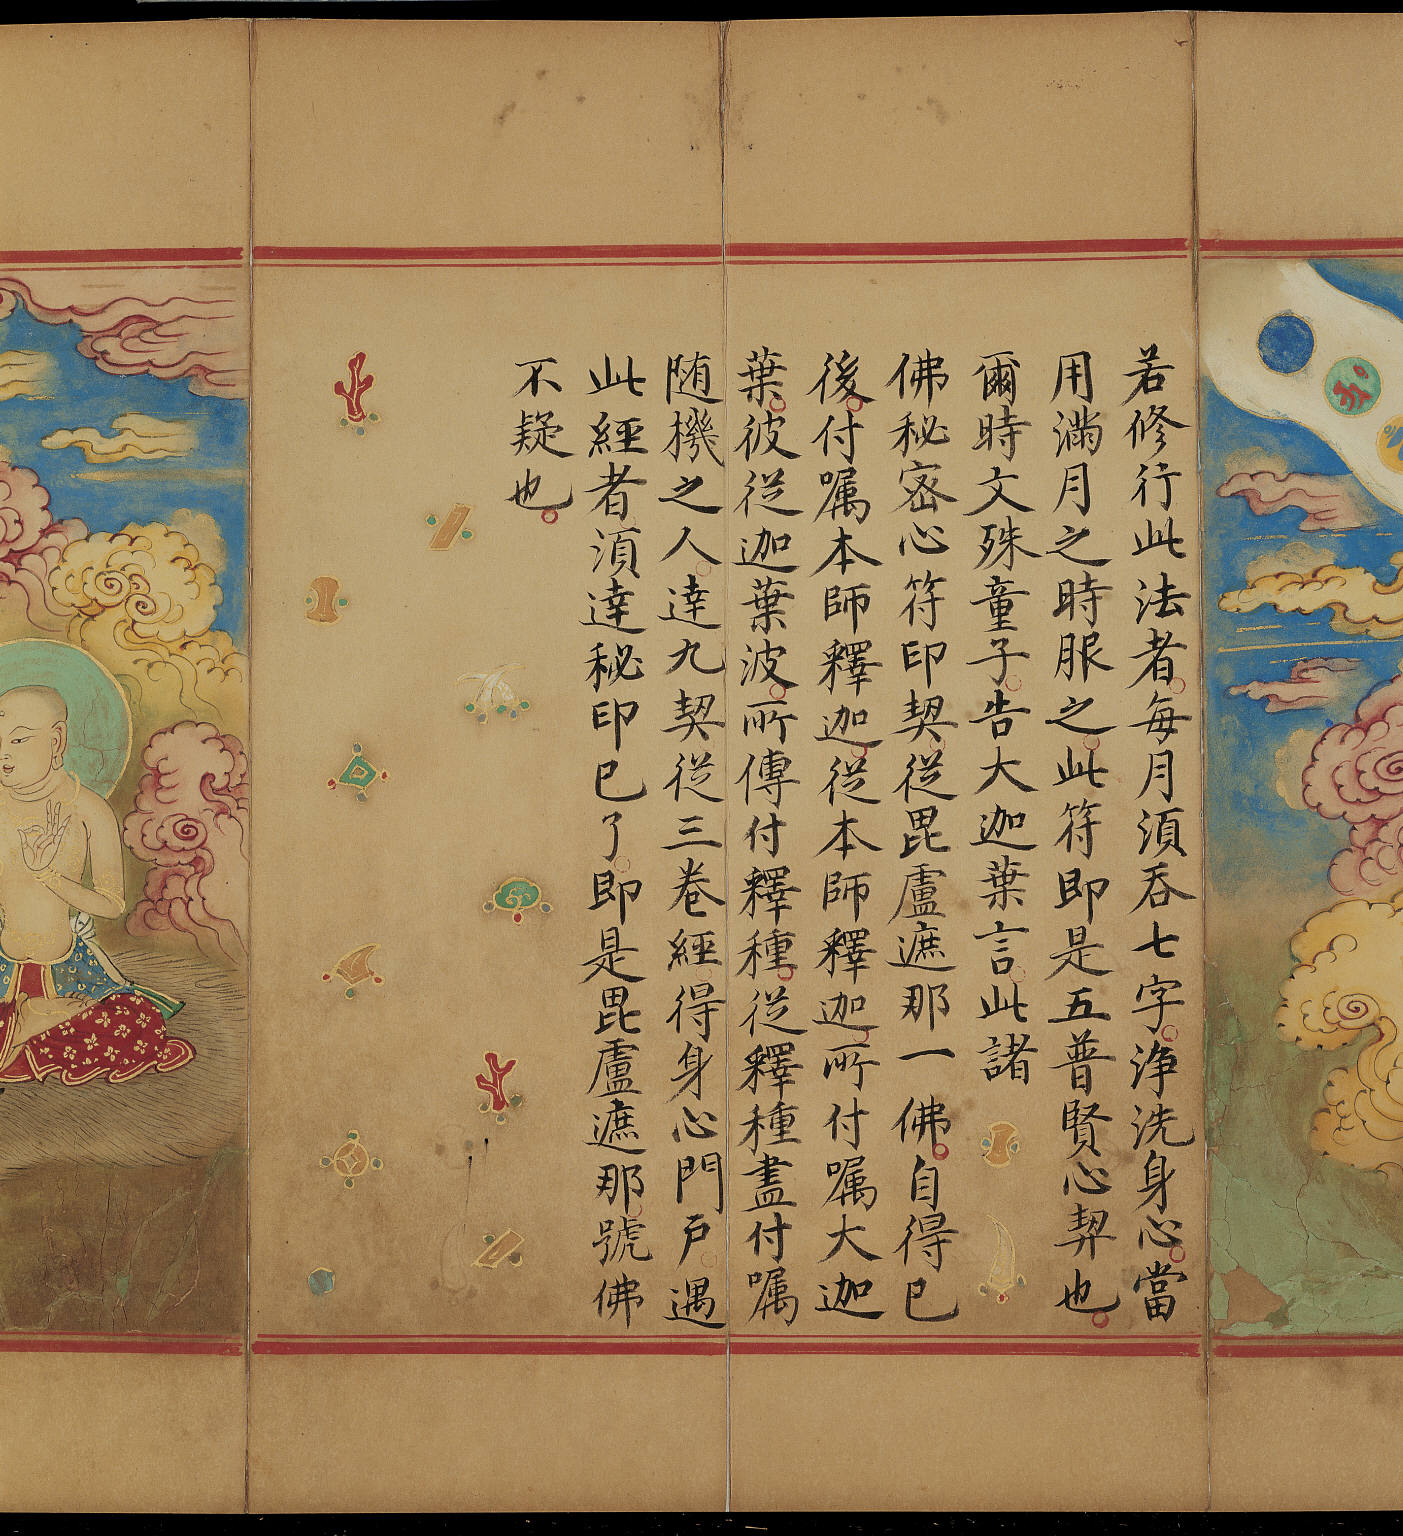 若修行此法者每月須吞七字淨洗身心當
用滿月之時服之此符即是五普賢心契也
爾時文殊童子告大迦葉言此諸
佛秘密心符印契從毘盧遮那一佛自得已
後付囑本師釋迦從本師釋迦所付囑大迦
葉彼從迦葉波所傳付釋種從釋種盡付囑
隨機之人達九契從三卷經得身心門戶遇
此經者須達秘印已了即是毘盧遮那號佛
不疑也